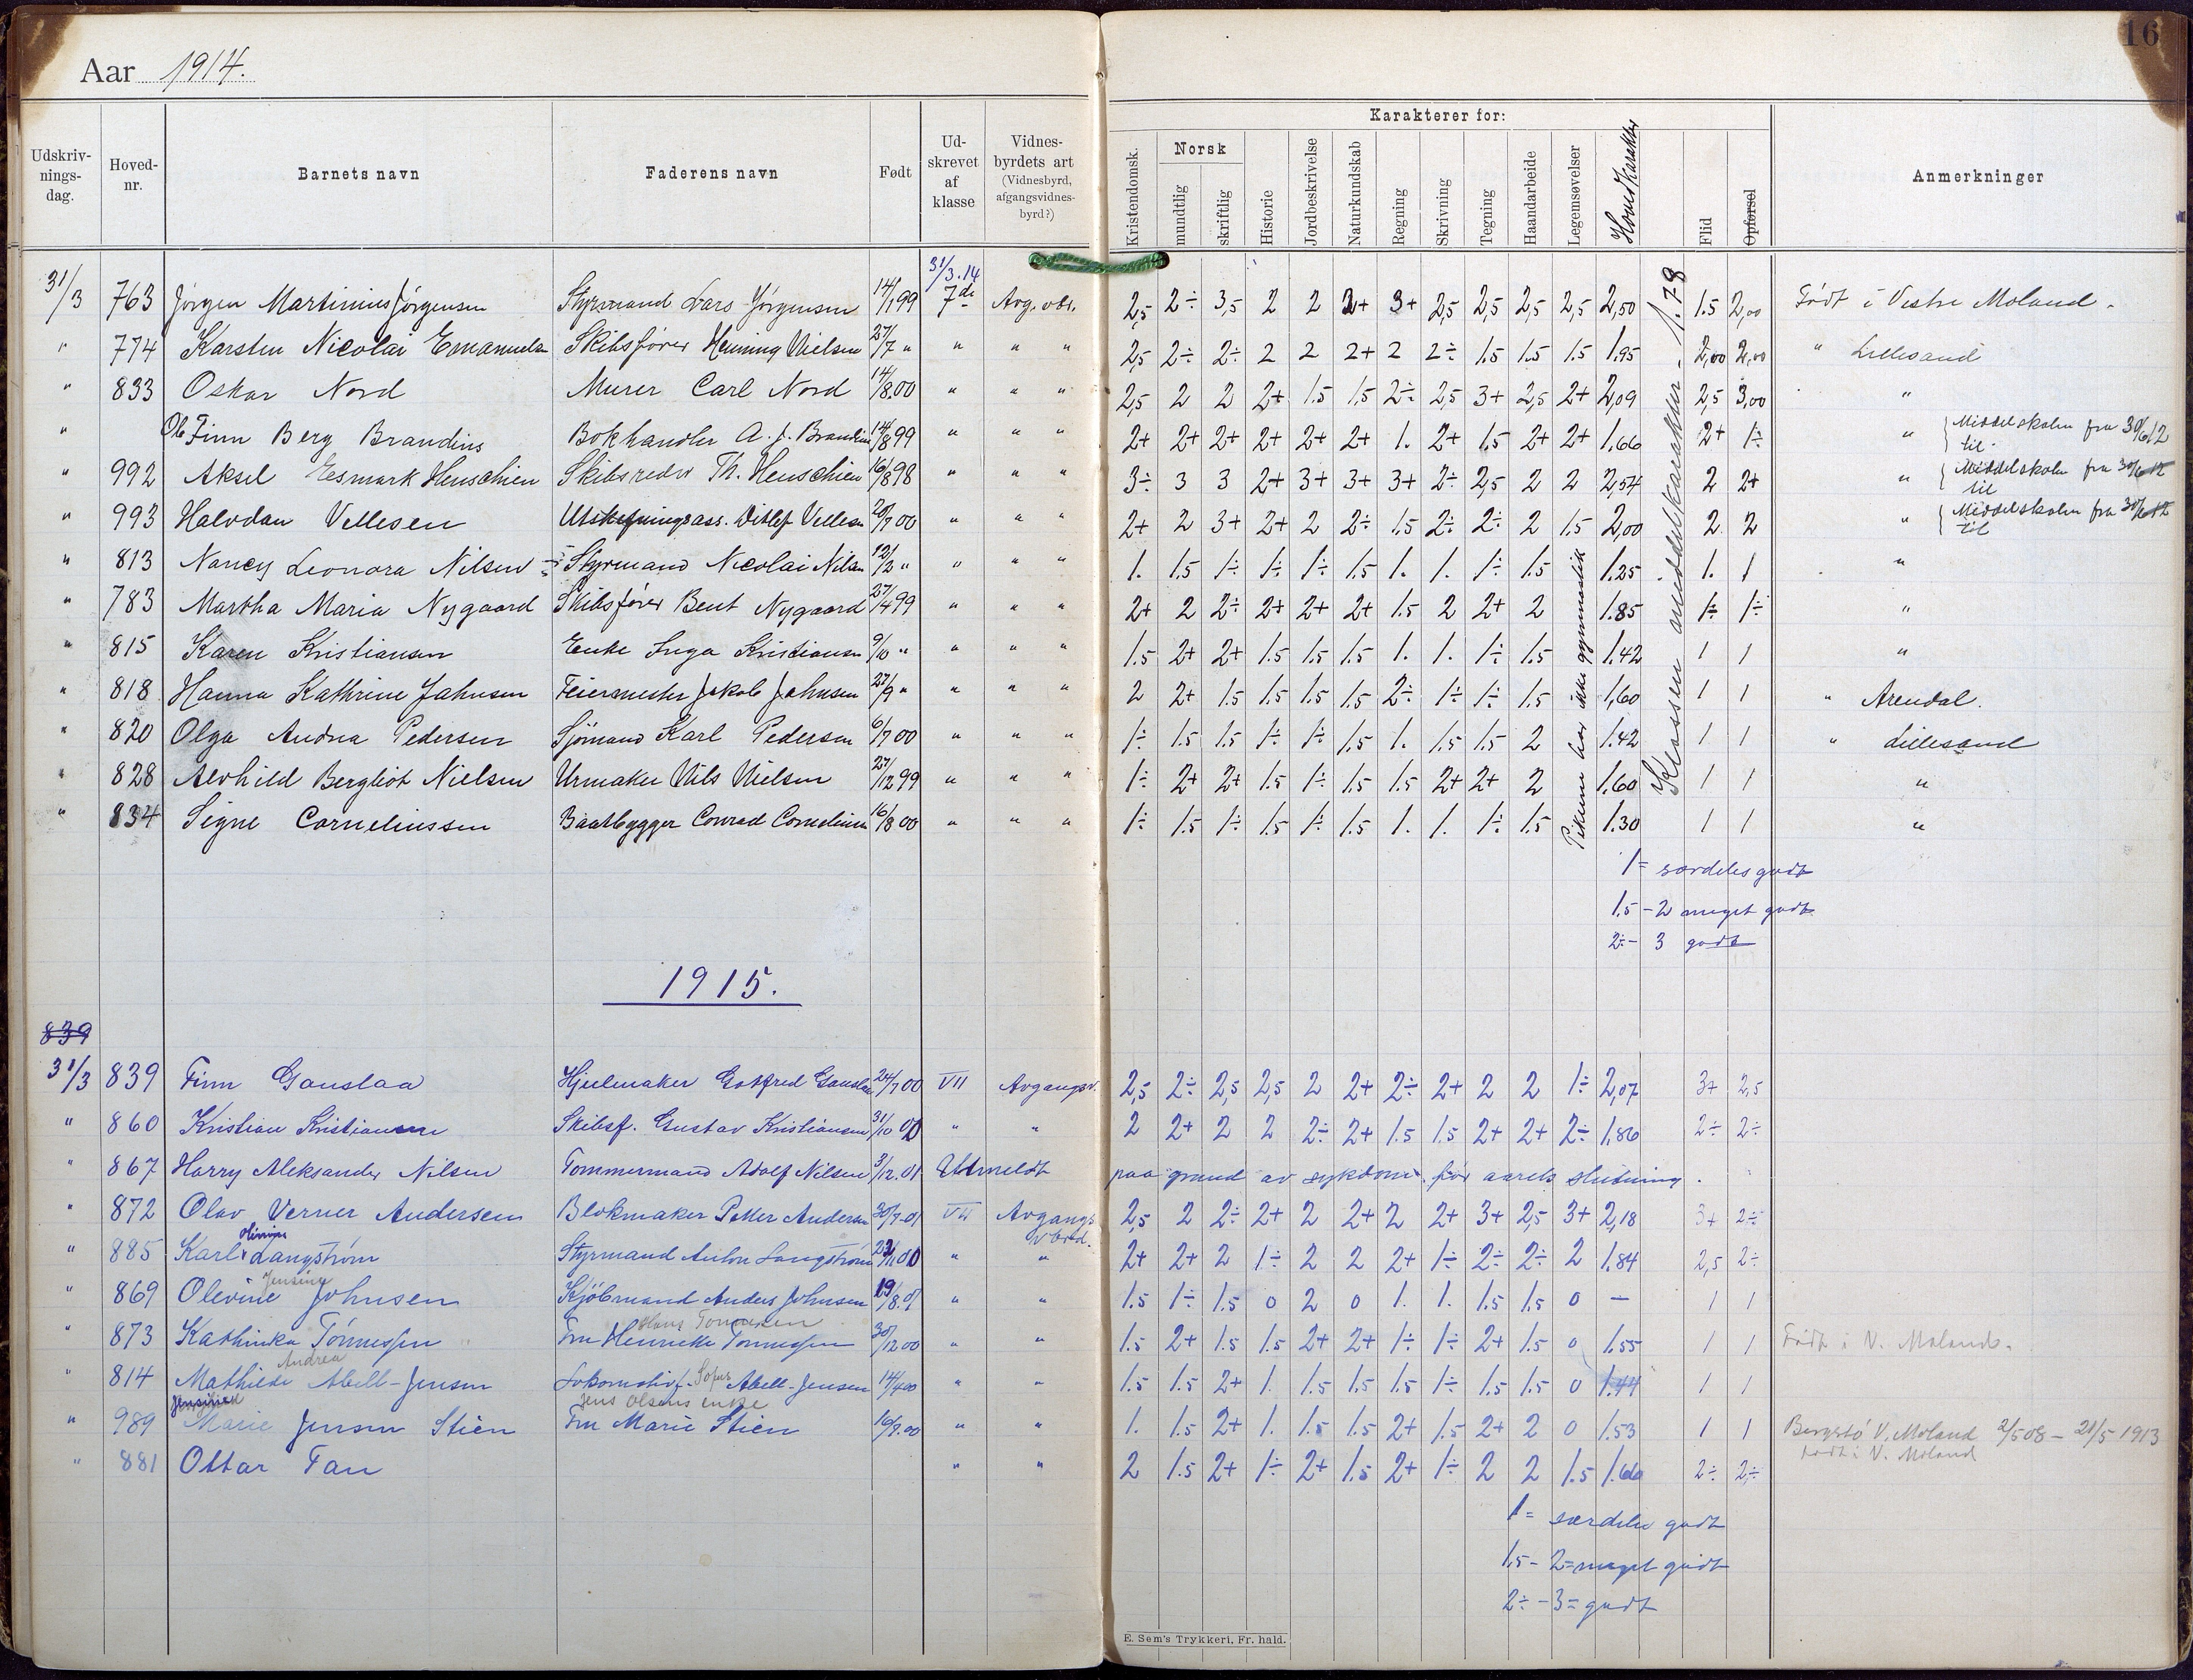 16
Aar 1914.
Karakterer for:
Udskriv-nings-dag. Hoved-nr. Barnets navn Faderens navn Født Ud-skrevet af klasse Vidnes-byrdets art (Vidnesbyrd, afgangsvidnes-byrd?) Kristendomsk. Norsk mundtlig skriftlig Historie Jordbeskrivelse Naturkundskab Regning Skrivning Tegning Haandarbeide Legemsøvelser Hovedkarakter Flid Opførsel Anmerkninger
31/3.14
31/3 763 Jörgen Martinius Jörgensen Styrmand Lars Jörgensen 14/1 99 7de Avg. vbr. 2,5 2÷ 3,5 2 2 2+ 3+ 2,5 2,5 2,5 2,5 2,50 1.5 2,00 Födt i Vestre Moland.
" 774 Karsten Nicolai Emanuelsen Skibsfører Henning Nielsen 27/7 " " " " 2,5 2÷ 2÷ 2 2 2+ 2 2÷ 1.5 1.5 1.5 1.95 2,00 2,00 " Lillesand
" 833 Oskar Nord Murer Carl Nord 14/8.00 " " " 2,5 2 2 2+ 1.5 1.5 2÷ 2,5 3+ 2,5 2+ 2,09 2,5 3,00 "
" Ole Finn Berg Brandius Bokhandler A. J. Brandius 14/8 99 " " " 2+ 2+ 2+ 2+ 2+ 2+ 1. 2+ 1.5 2+ 2+ 1.66 2+ 1÷ " Middelskolen fra 30/6 12 til
" 992 Aksel Eesmark Henschien Skibsreder Th. Henschien 16/8 98 " " " 3÷ 3 3 2+ 3+ 3+ 3+ 2÷ 2,5 2 2 2,54 2 2+ " Middelskolen fra 30/6 12 til
" 993 Halvdan Vellesen Utskiftningsass. Ditlef Vellesen 20/7 00 " " " 2+ 2 3+ 2+ 2 2÷ 1.5 2÷ 2÷ 2 1.5 2,00 2 2 " Middelskolen fra 30/6 12 til
" 813 Nancy Leonora Nilsen Styrmand Nicolai Nilsen 12/2 " " " " 1. 1.5 1÷ 1÷ 1÷ 1.5 1. 1. 1÷ 1.5 1.25 1. 1 "
" 783 Martha Maria Nygaard Skibsfører Bent Nygaard 27/4 99 " " " 2+ 2 2÷ 2+ 2+ 2+ 1.5 2 2+ 2 1.85 1÷ 1÷ "
" 815 Karen Kristiansen Enke Inga Kristiansen 9/10 " " " " 1.5 2+ 2+ 1.5 1.5 1.5 1. 1. 1÷ 1.5 1.42 1 1 "
" 818 Hanna Kathrine Jahnsen Feiermester Jakob Jahnsen 27/9 " " " " 2 2+ 1.5 1.5 1.5 1.5 2÷ 1÷ 1÷ 1.5 1,60 1 1 " Arendal.
" 820 Olga Andrea Pedersen Sjömand Karl Pedersen 6/7 00 " " " 1÷ 1.5 1.5 1÷ 1÷ 1.5 1. 1.5 1.5 2 1.42 1 1 " Lillesand
" 828 Alvhild Bergliot Nielsen Urmaker Nils Nielsen 27/12 99 " " " 1÷ 2+ 2+ 1.5 1÷ 1.5 1.5 2+ 2+ 2 1.60 1 1 "
" 834 Signe Corneliussen Baatbygger Conrad Corneliussen 16/8 00 " " " 1÷ 1.5 1÷ 1.5 1÷ 1.5 1. 1. 1÷ 1.5 1.30 1 1 "
Pikerne har ikke gymnastik
Klassens middelkarakter - 1.78
1 = særdeles godt
1.5 - 2 meget godt
2÷ - 3 godt
1915.
839
31/3 839 Finn Gauslaa Hjulmaker Gotfred Gauslaa 24/7 00 VII Avgangsv. 2,5 2÷ 2,5 2,5 2 2+ 2÷ 2+ 2 2 1÷ 2,07 3+ 2,5
" 860 Kristian Kristiansen Skibsf. Gustav Kristiansen 31/10 00 " " 2 2+ 2 2 2÷ 2+ 1.5 1.5 2+ 2+ 2÷ 1.86 2÷ 2÷
" 867 Harry Aleksander Nilsen Tømmermand Adolf Nilsen 3/12.01 Utmeldt paa grund av sykdom før aarets slutning.
" 872 Olav Verner Andersen Blokmaker Petter Andersen 30/7.01 VII Avgangs vbrd. 2,5 2 2÷ 2+ 2 2+ 2 2+ 3+ 2,5 3+ 2,18 3+ 2÷
" 885 Karl Langström Styrmand Anton Langström 22/11 00 " " 2+ 2+ 2 1÷ 2 2 2+ 1÷ 2÷ 2÷ 2 1.84 2,5 2÷
" 869 Olevine Jensine Johnsen Kjöbmand Anders Johnsen 19/8.01 " " 1.5 1÷ 1.5 0 2 0 1. 1. 1.5 1.5 0 — 1 1
Hans Tönnesen
" 873 Kathinka Tönnessen Fru Henriette Tönnessen 30/12 00 " " 1.5 2+ 1.5 1.5 2+ 2+ 1÷ 1÷ 2+ 1.5 0 1.55 1 1 Födt i V. Moland.
" 814 Mathilde Andrea Abell-Jensen Lokomotivf. Sofus Abell-Jensen 14/4 00 " " 1.5 1.5 2+ 1. 1.5 1.5 1.5 1÷ 1.5 1.5 0 1.44 1 1
Jens Olsens enke
" 989 Marie Jensen Stien Fru Marie Stien 16/9.00 " " 1. 1.5 2+ 1. 1.5 1.5 2+ 1.5 2+ 2 0 1.53 1 1 Bergstø V. Moland 2/5 08 - 21/5 1913
födt i V. Moland
" 881 Ottar Fan " " 2 1.5 2+ 1÷ 2+ 1.5 2+ 1÷ 2 2 1.5 1.66 2÷ 2÷
1 = særdeles godt
1.5 - 2 = meget godt
2÷ - 3 = godt
E. Sem's Trykkeri, Fr. hald.